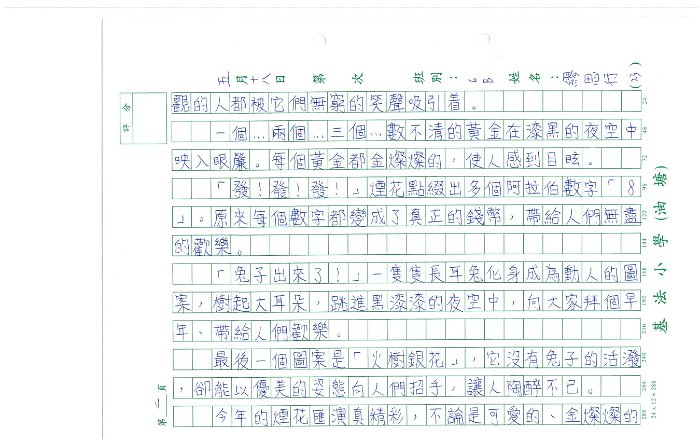 五月十八日 第 次 班別：6B 姓名： (25)
評分
觀的人都被它們無窮的笑聲吸引着。
一個…兩個…三個…數不清的黃金在漆黑的夜空中
映入眼簾。每個黃金都金燦燦的，使人感到目眩。
「發！發！發！」煙花點綴出多個阿拉伯數字「8
」。原來每個數字都變成了真正的錢幣，帶給人們無盡
的歡樂。
「兔子出來了！」一隻隻長耳兔化身成為動人的圖
案，樹起大耳朵，跳進黑漆漆的夜空中，向大家拜個早
年、帶給人們歡樂。
最後一個圖案是「火樹銀花」，它沒有兔子的活潑
，卻能以優美的姿態向人們招手，讓人陶醉不已。
今年的煙花匯演真精彩，不論是可愛的、金燦燦的
第二頁
基法小學(油塘)
24
48
72
96
120
144
168
192
216
240
264
288
24 x 12 = 288